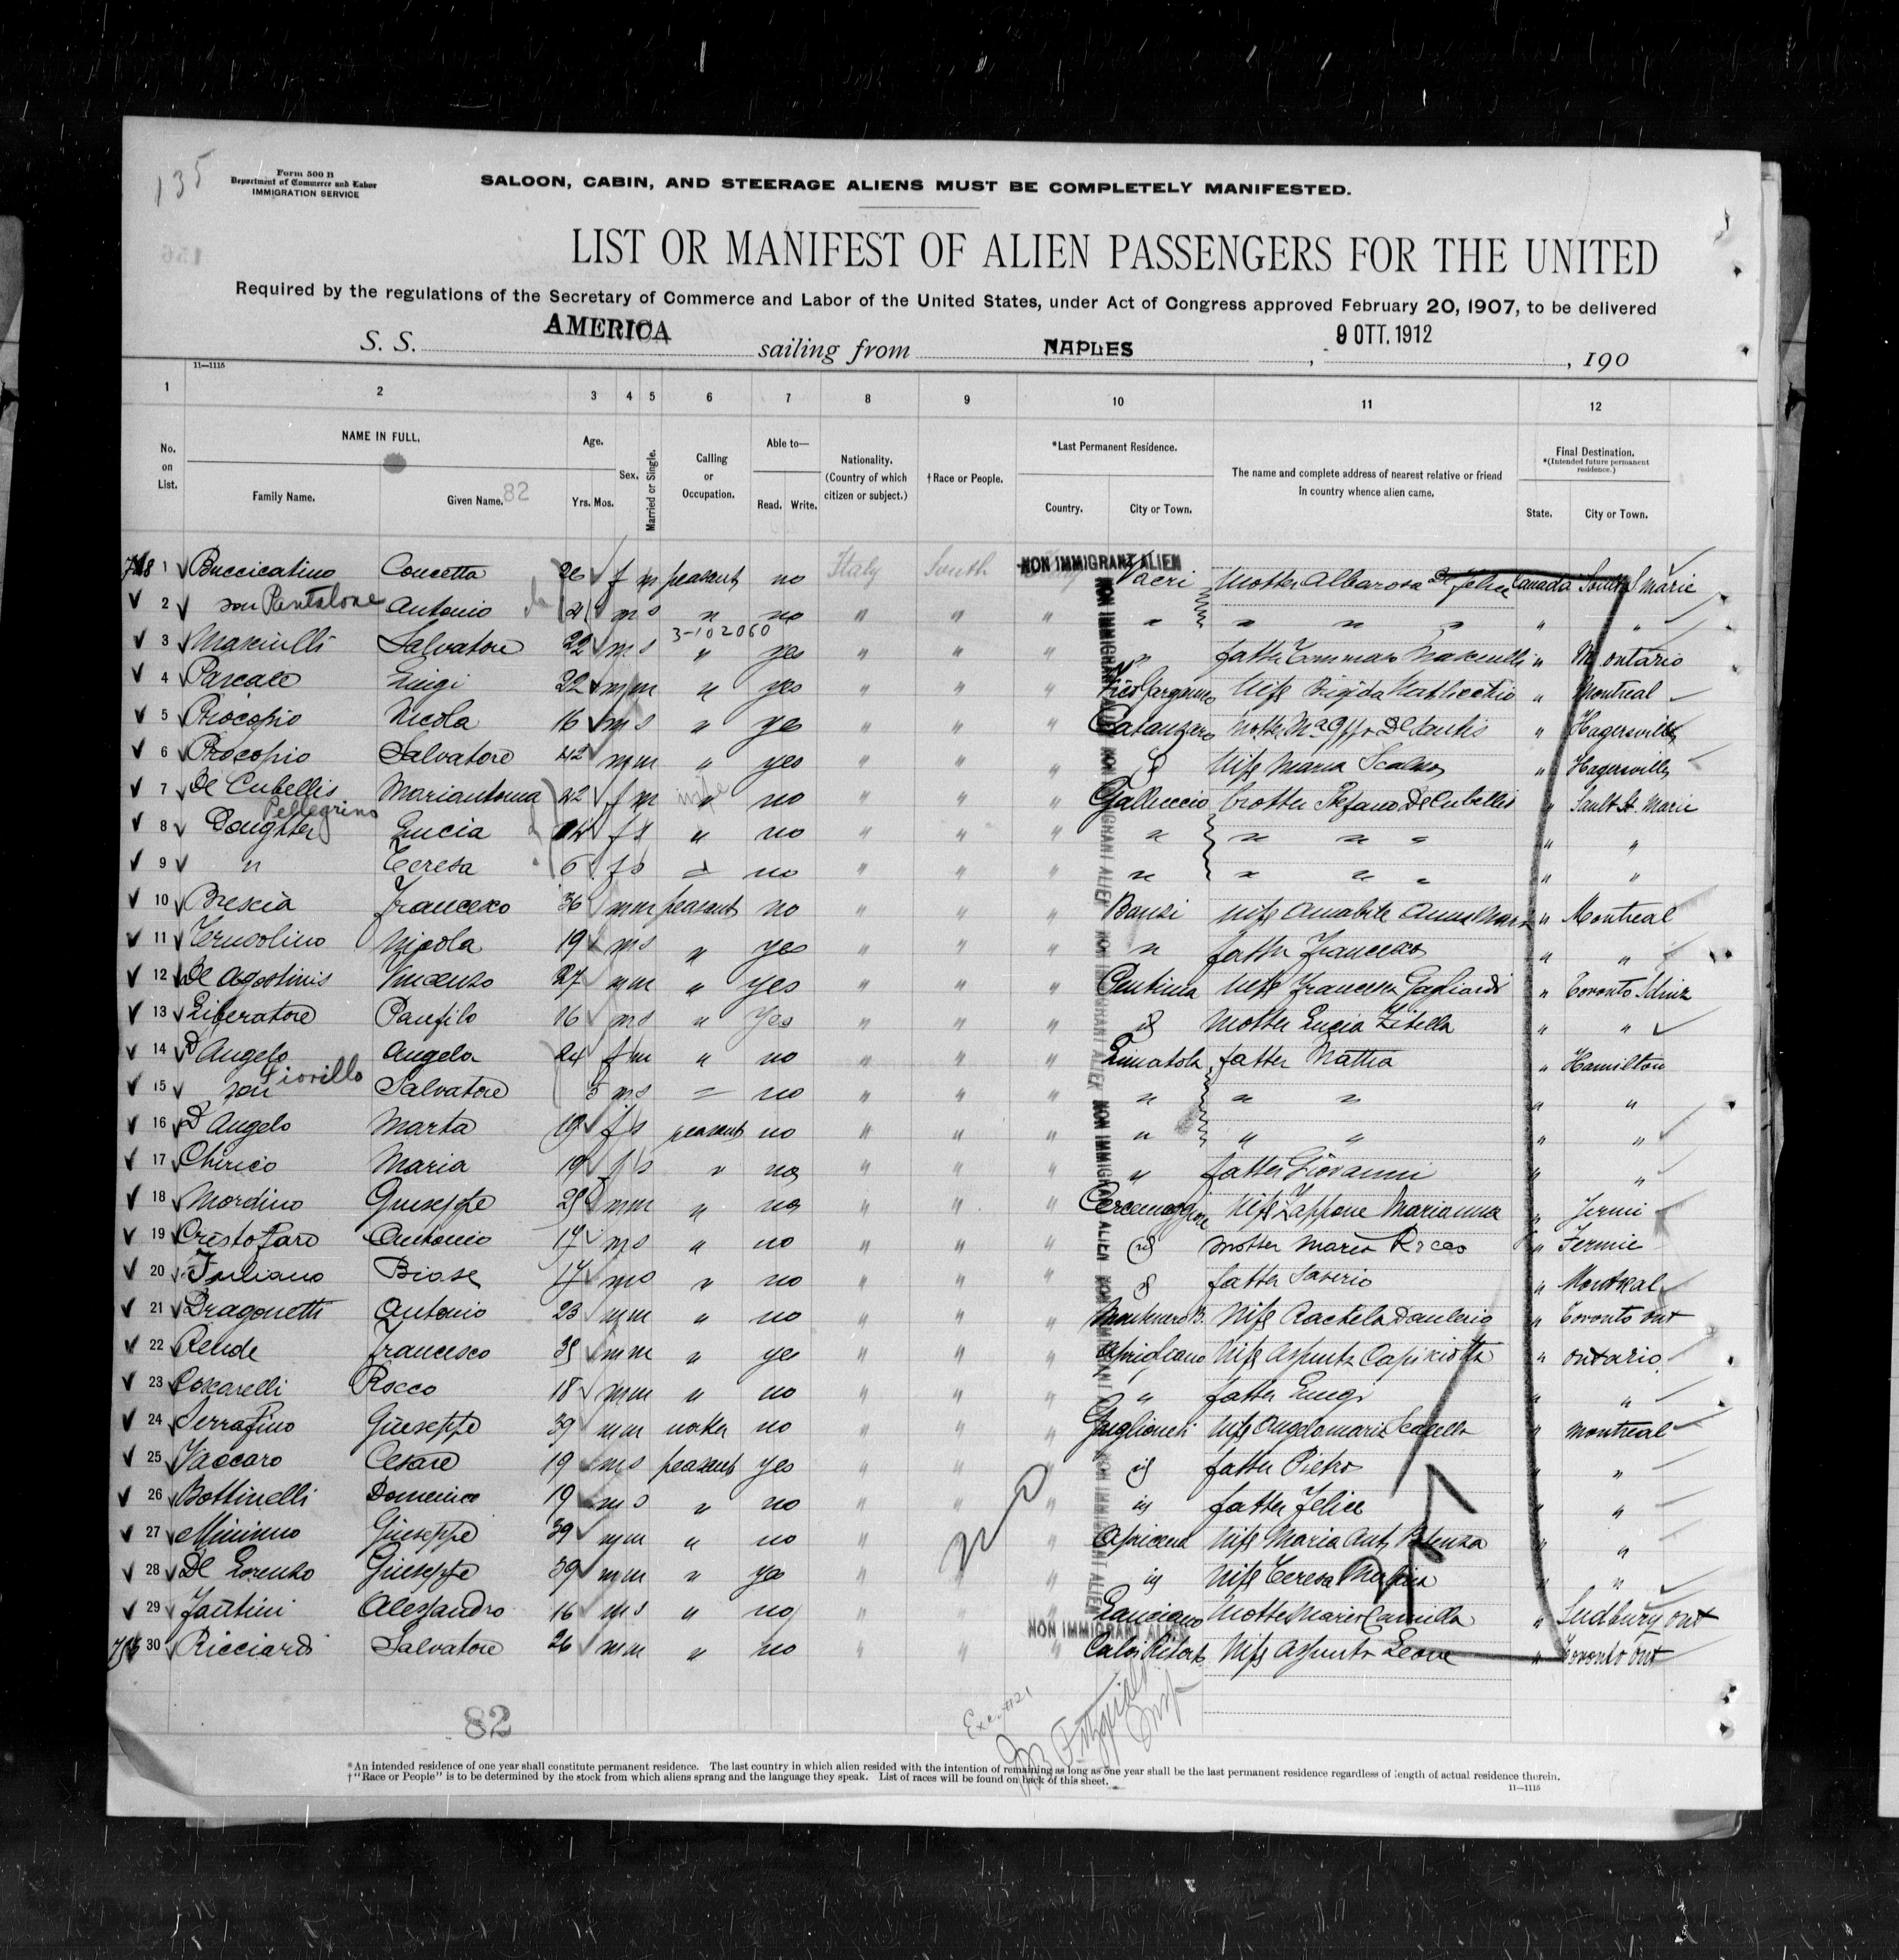 135
Form 500 B
Department of Commerce and Labor
IMMIGRATION SERVICE
SALOON, CABIN, AND STEERAGE ALIENS MUST BE COMPLETELY MANIFESTED.
LIST OR MANIFEST OF ALIEN PASSENGERS FOR THE UNITED
Required by the regulations of the Secretary of Commerce and Labor of the United States, under Act of Congress approved February 20, 1907, to be delivered
S. S. AMERICA sailing from NAPLES, 9 OTT. 1912, 190
11—1115
1 2 3 4 5 6 7 8 9 10 11 12
No. on List. NAME IN FULL. Family Name. Given Name. 82 Age. Yrs. Mos. Sex. Married or Single. Calling or Occupation. Able to— Read. Write. Nationality. (Country of which citizen or subject.) †Race or People. *Last Permanent Residence. Country. City or Town. The name and complete address of nearest relative or friend in country whence alien came. Final Destination. *(Intended future permanent residence.) State. City or Town.
NON IMMIGRANT ALIEN
1 Buccicatino Concetta 26 f m peasant no Italy South Vacri Mother Albarosa De Felice Canada Marie
2 son Pantalone Antonio m s " no " " " " " " " " "
3-102060
3 Masciulli Salvatore 22 m s " yes " " " " father Tommaso Masciulli " Ontario
4 Pascale Luigi 22 m m " yes " " " Vico Gargano Wife Brigida " Montreal
5 Procopio Nicola 16 m s " ye " " " Catanzaro Mother " Hagersville
6 Procopio Salvatore 42 m m " yes " " " Wife Maria Scalzo " Hagersville
7 De Cubellis Mariantonia 42 f m " no " " " Galluccio brother Stefano De Cubellis " Sault St. Marie
8 Daughter Pellegrino Lucia 14 f s " no " " " " " " " " "
9 " Teresa 6 f s = no " " " " " " " " "
10 Brescia Francesco 36 m m peasant no " " " Banzi wife Amabile Anna " Montreal
11 Nicola 19 m s " yes " " " " father Francesco " "
12 De Agostinis Vincenzo 27 m m " yes " " " Pentima wife Francesca Gagliardi " Toronto
13 Liberatore Panfilo 16 m s " Yes " " " id Mother Lucia Zitella " "
14 D'Angelo Angela 24 f m " no " " " Limatola father Mattia " Hamilton
15 son Fiorillo Salvatore 5 m s = no " " " " " " " "
16 D'Angelo Marta 19 f s peasant no " " " " " " " "
17 Chirico Maria 19 f s " no " " " " father Giovanni " "
18 Mordino Giuseppe m m " no " " " Cercemaggiore Wife Zappone Marianna "
19 Cristofaro Antonio 17 m s " no " " " id mother Maria Rocco " Fernie
20 Juliano Biase 17 m s " no " " " id father Saverio " Montreal
21 Dragonetti Antonio 23 m m " no " " " Wife Rachela " Toronto Ont
22 Rende Francesco m m " yes " " " Aprigliano Wife Assunta " Ontario
23 Coscarelli Rocco 18 m m " no " " " " father Luigi " "
24 Serrafino Giuseppe 39 m m worker no " " " Guglionesi wife Angelamaria " Montreal
25 Vaccaro Cesare 19 m s peasant yes " " " id father Pietro " "
26 Bottinelli Domenico 19 m s " no " " " id father Felice " "
27 Minimo Giuseppe 39 m m " no " " " Apricena Wife Maria Ant. Potenza " "
28 De Lorenzo Giuseppe 39 m m " ye " " " id Wife Teresa " "
29 Fantini Alessandro 16 m s " no " " " Lanciano Mother Maria Camilla " Sudbury Ont
30 Ricciardi Salvatore 26 m m " no " " " Calvi Risorta Wife Assunta Leone " Toronto Ont
NON IMMIGRANT ALIEN
82
Fitzgerald
Insp
*An intended residence of one year shall constitute permanent residence. The last country in which alien resided with the intention of remaining as long as one year shall be the last permanent residence regardless of length of actual residence therein.
†"Race or People" is to be determined by the stock from which aliens sprang and the language they speak. List of races will be found on back of this sheet.
11—1115